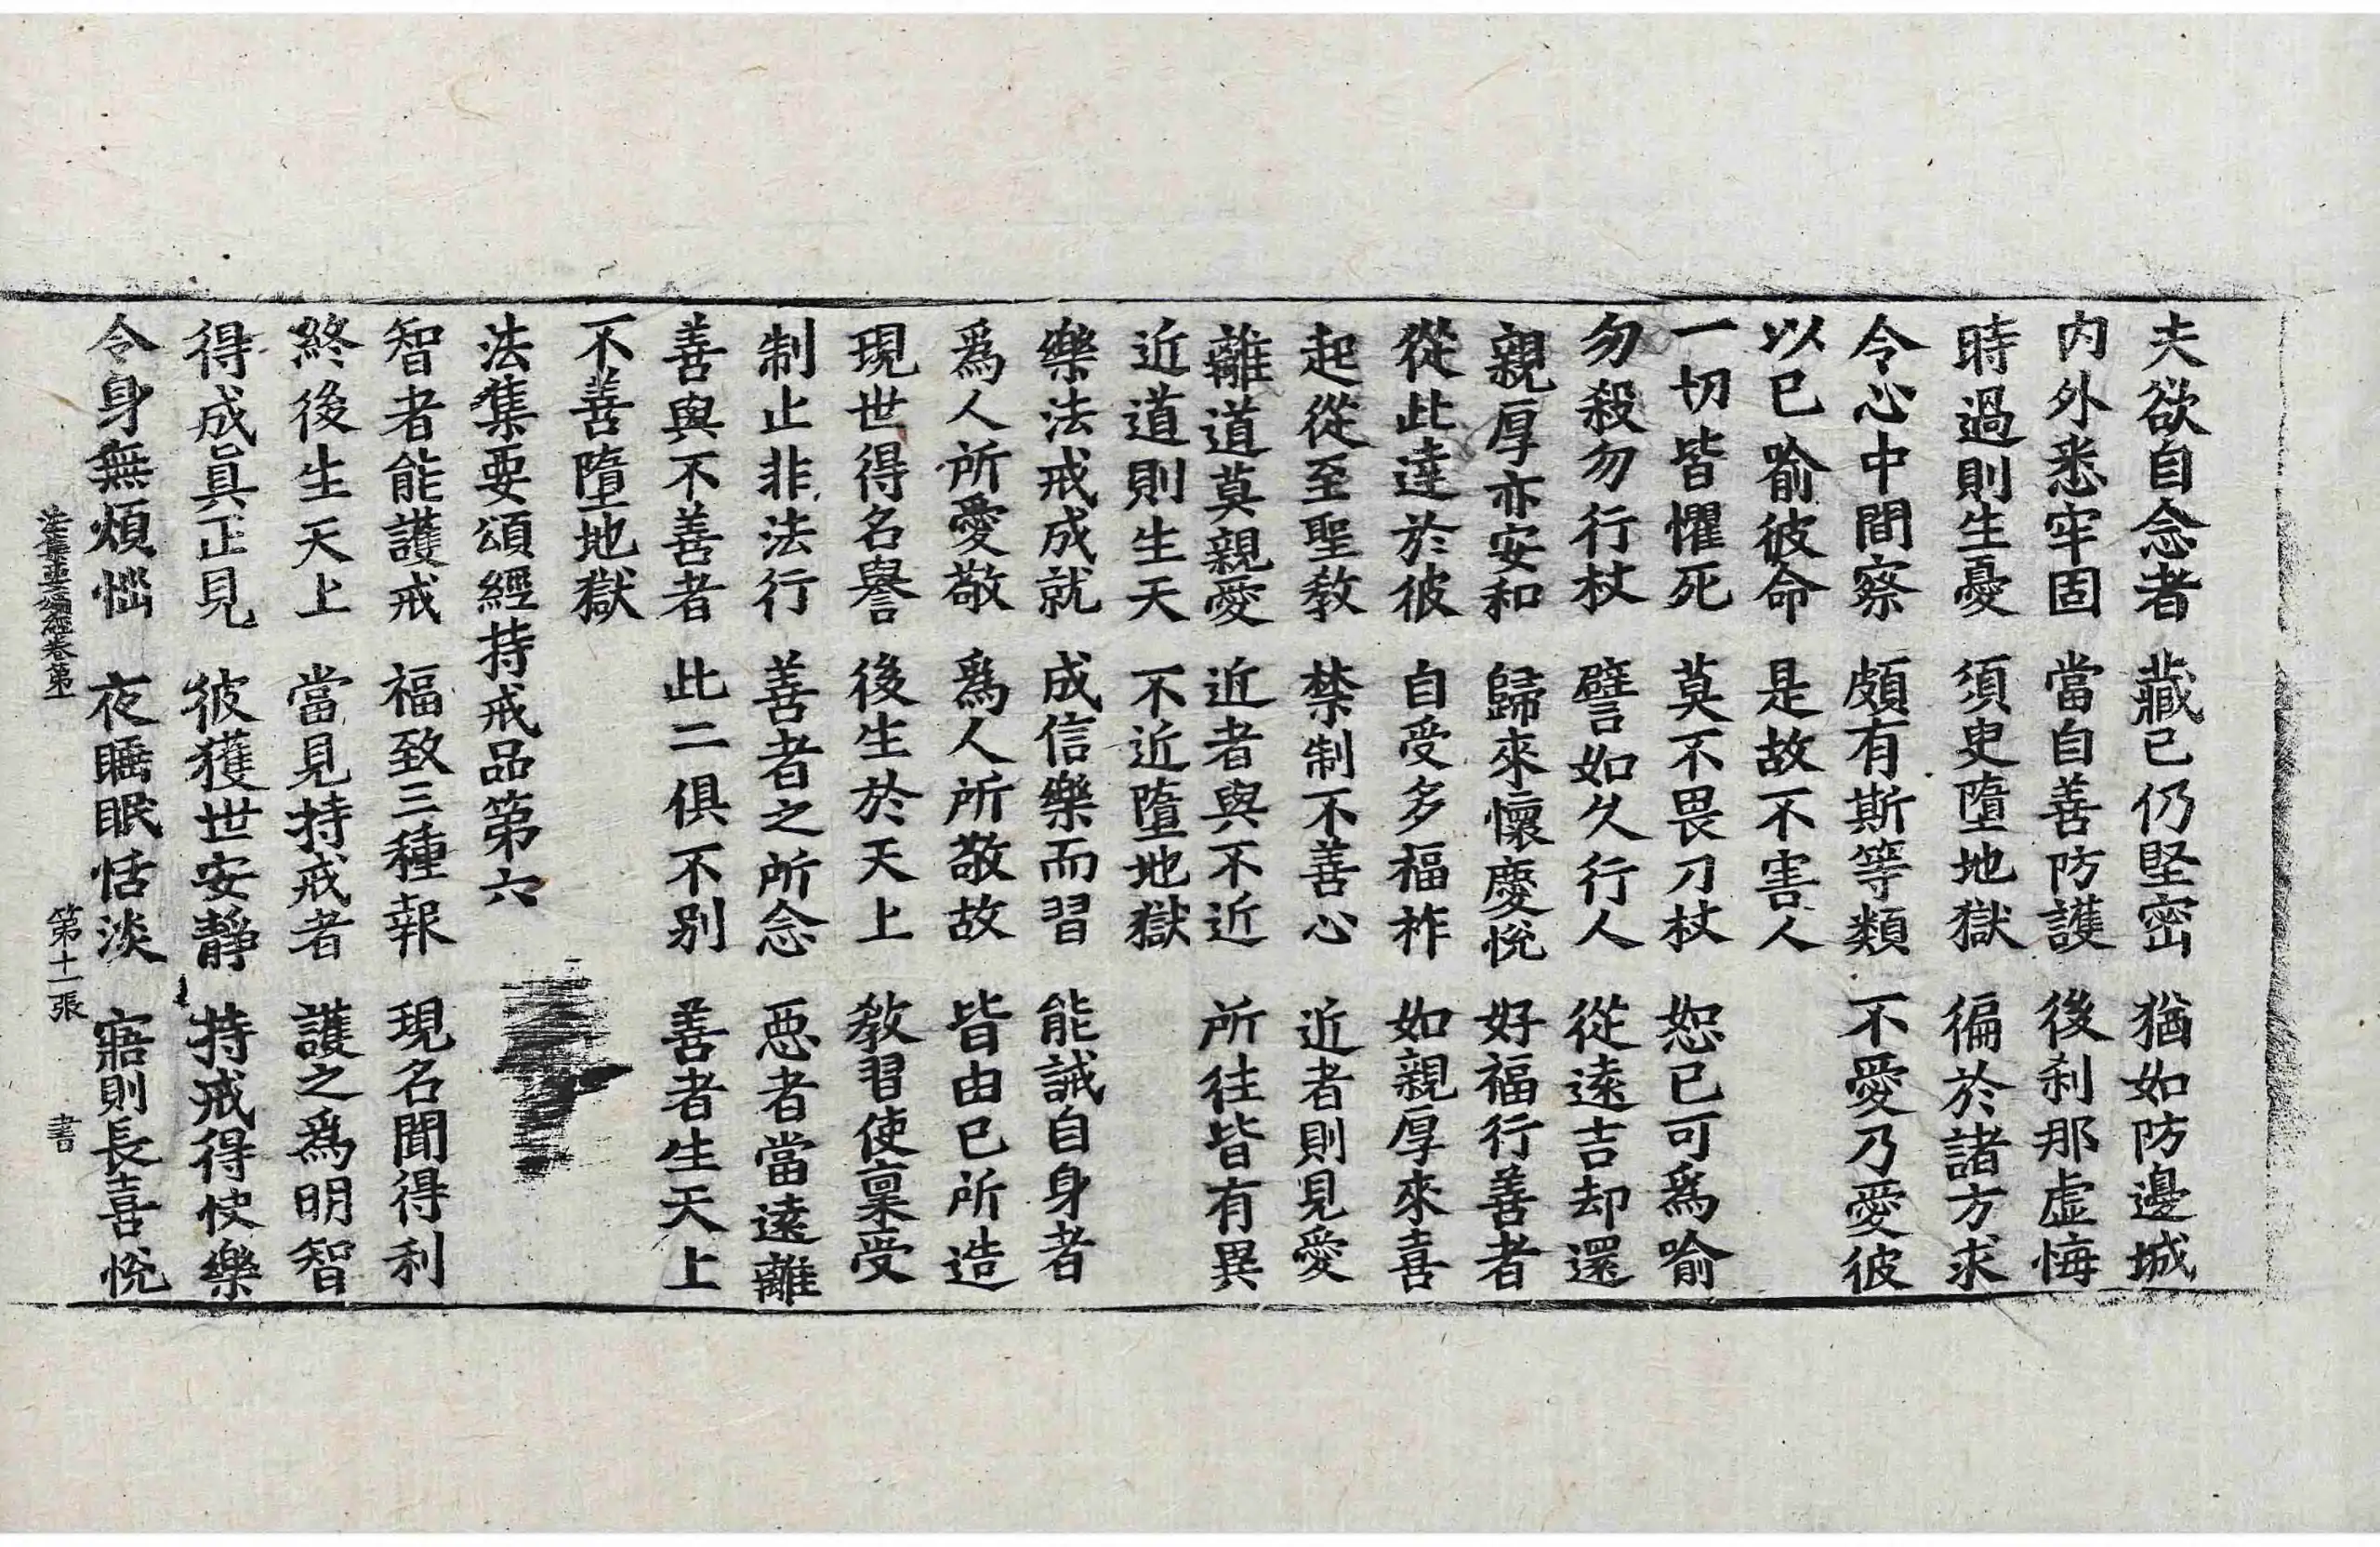 夫欲自念者　藏己仍堅密　猶如防邊城
内外悉牢固　當自善防護　後刹那虛悔
時過則生憂　須臾墮地獄　徧於諸方求
令心中間察　頗有斯等類　不愛乃愛彼
以已喻彼命　是故不害人
一切皆懼死　莫不畏刀杖　恕已可爲喻
勿殺勿行杖　譬如久行人　從遠吉却還
親厚亦安和　歸來懷慶悅　好福行善者
從此達於彼　自受多福祚　如親厚來喜
起從至聖教　禁制不善心　近者則見愛
離道莫親愛　近者與不近　所往皆有異
近道則生天　不近墮地獄
樂法戒成就　成信樂而習　能誡自身者
爲人所愛敬　爲人所敬故　皆由已所造
現世得名譽　後生於天上　教習使稟受
制止非法行　善者之所念　惡者當遠離
善與不善者　此二俱不别　善者生天上
不善墮地獄
法集要頌經持戒品第六
智者能護戒　福致三種報　現名聞得利
終後生天上　當見持戒者　護之爲明智
得成眞正見　彼獲世安靜　持戒得快樂
令身無煩惱　夜睡眠恬淡　寤則長喜悅
法集要頌經卷第一　第十一張　書